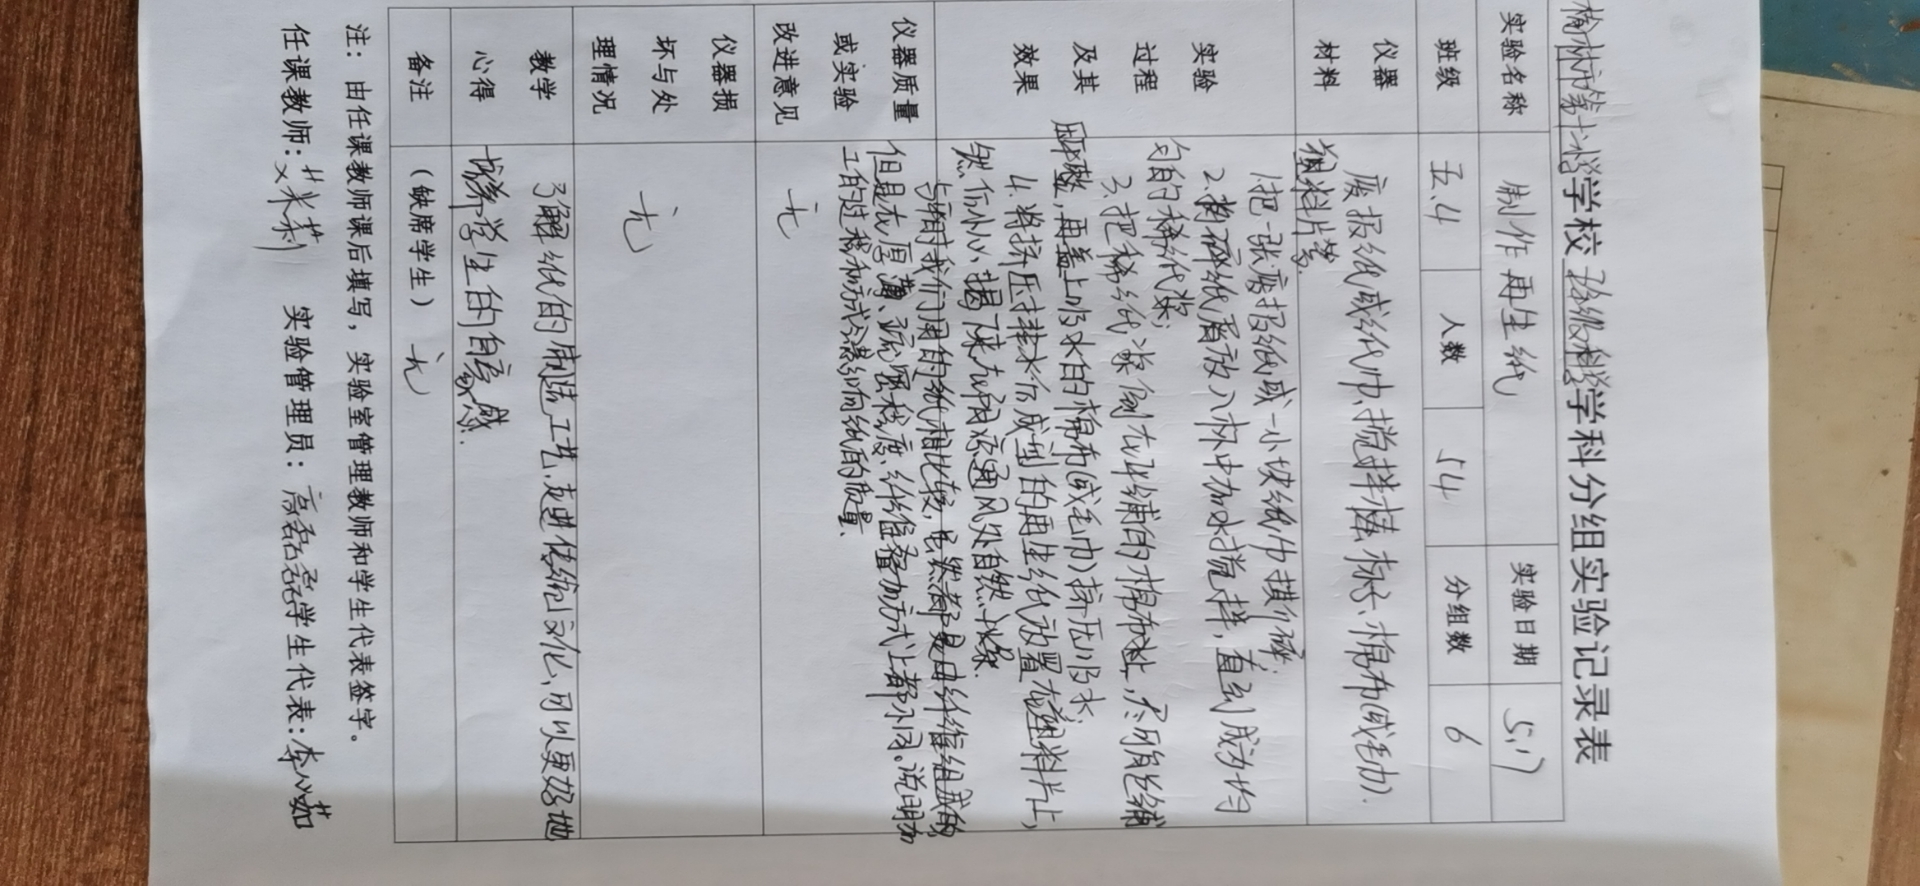 榆林市第十小学学校 五年级科学学科分组实验记录表
实验名称 制作再生纸 实验日期 5.17
班级 五.4 人数 54 分组数 6
仪器材料
废报纸或纸巾、搅拌棒、杯子、棉布(或毛巾)、
塑料片等.
实验过程及其效果
1.把一张废报纸或一小块纸巾撕碎;
2.将碎纸屑放入杯中加水搅拌,直到成为均
匀的稀纸浆;
3.把稀纸浆倒在平铺的棉布上,尽可能地铺
平整,再盖上吸水的棉布(或毛巾)挤压吸水;
4.将挤压排水后成型的再生纸放置在塑料片上,
然后小心揭下来在阴凉通风处自然干燥.
5.与平时我们用的纸相比较,虽然都是由纤维组成的
但是在厚薄、疏密程度、纤维叠加方式上都不同。说明加
工的过程和方式会影响纸的质量.
仪器质量或实验改进意见
无
仪器损坏与处理情况
无
教学心得
了解纸的制造工艺,走进传统文化,可以更好地
培养学生的自豪感.
备注 (缺席学生) 无
注: 由任课教师课后填写, 实验室管理教师和学生代表签字。
任课教师: 艾米莉 实验管理员: 高磊磊 学生代表: 李茹